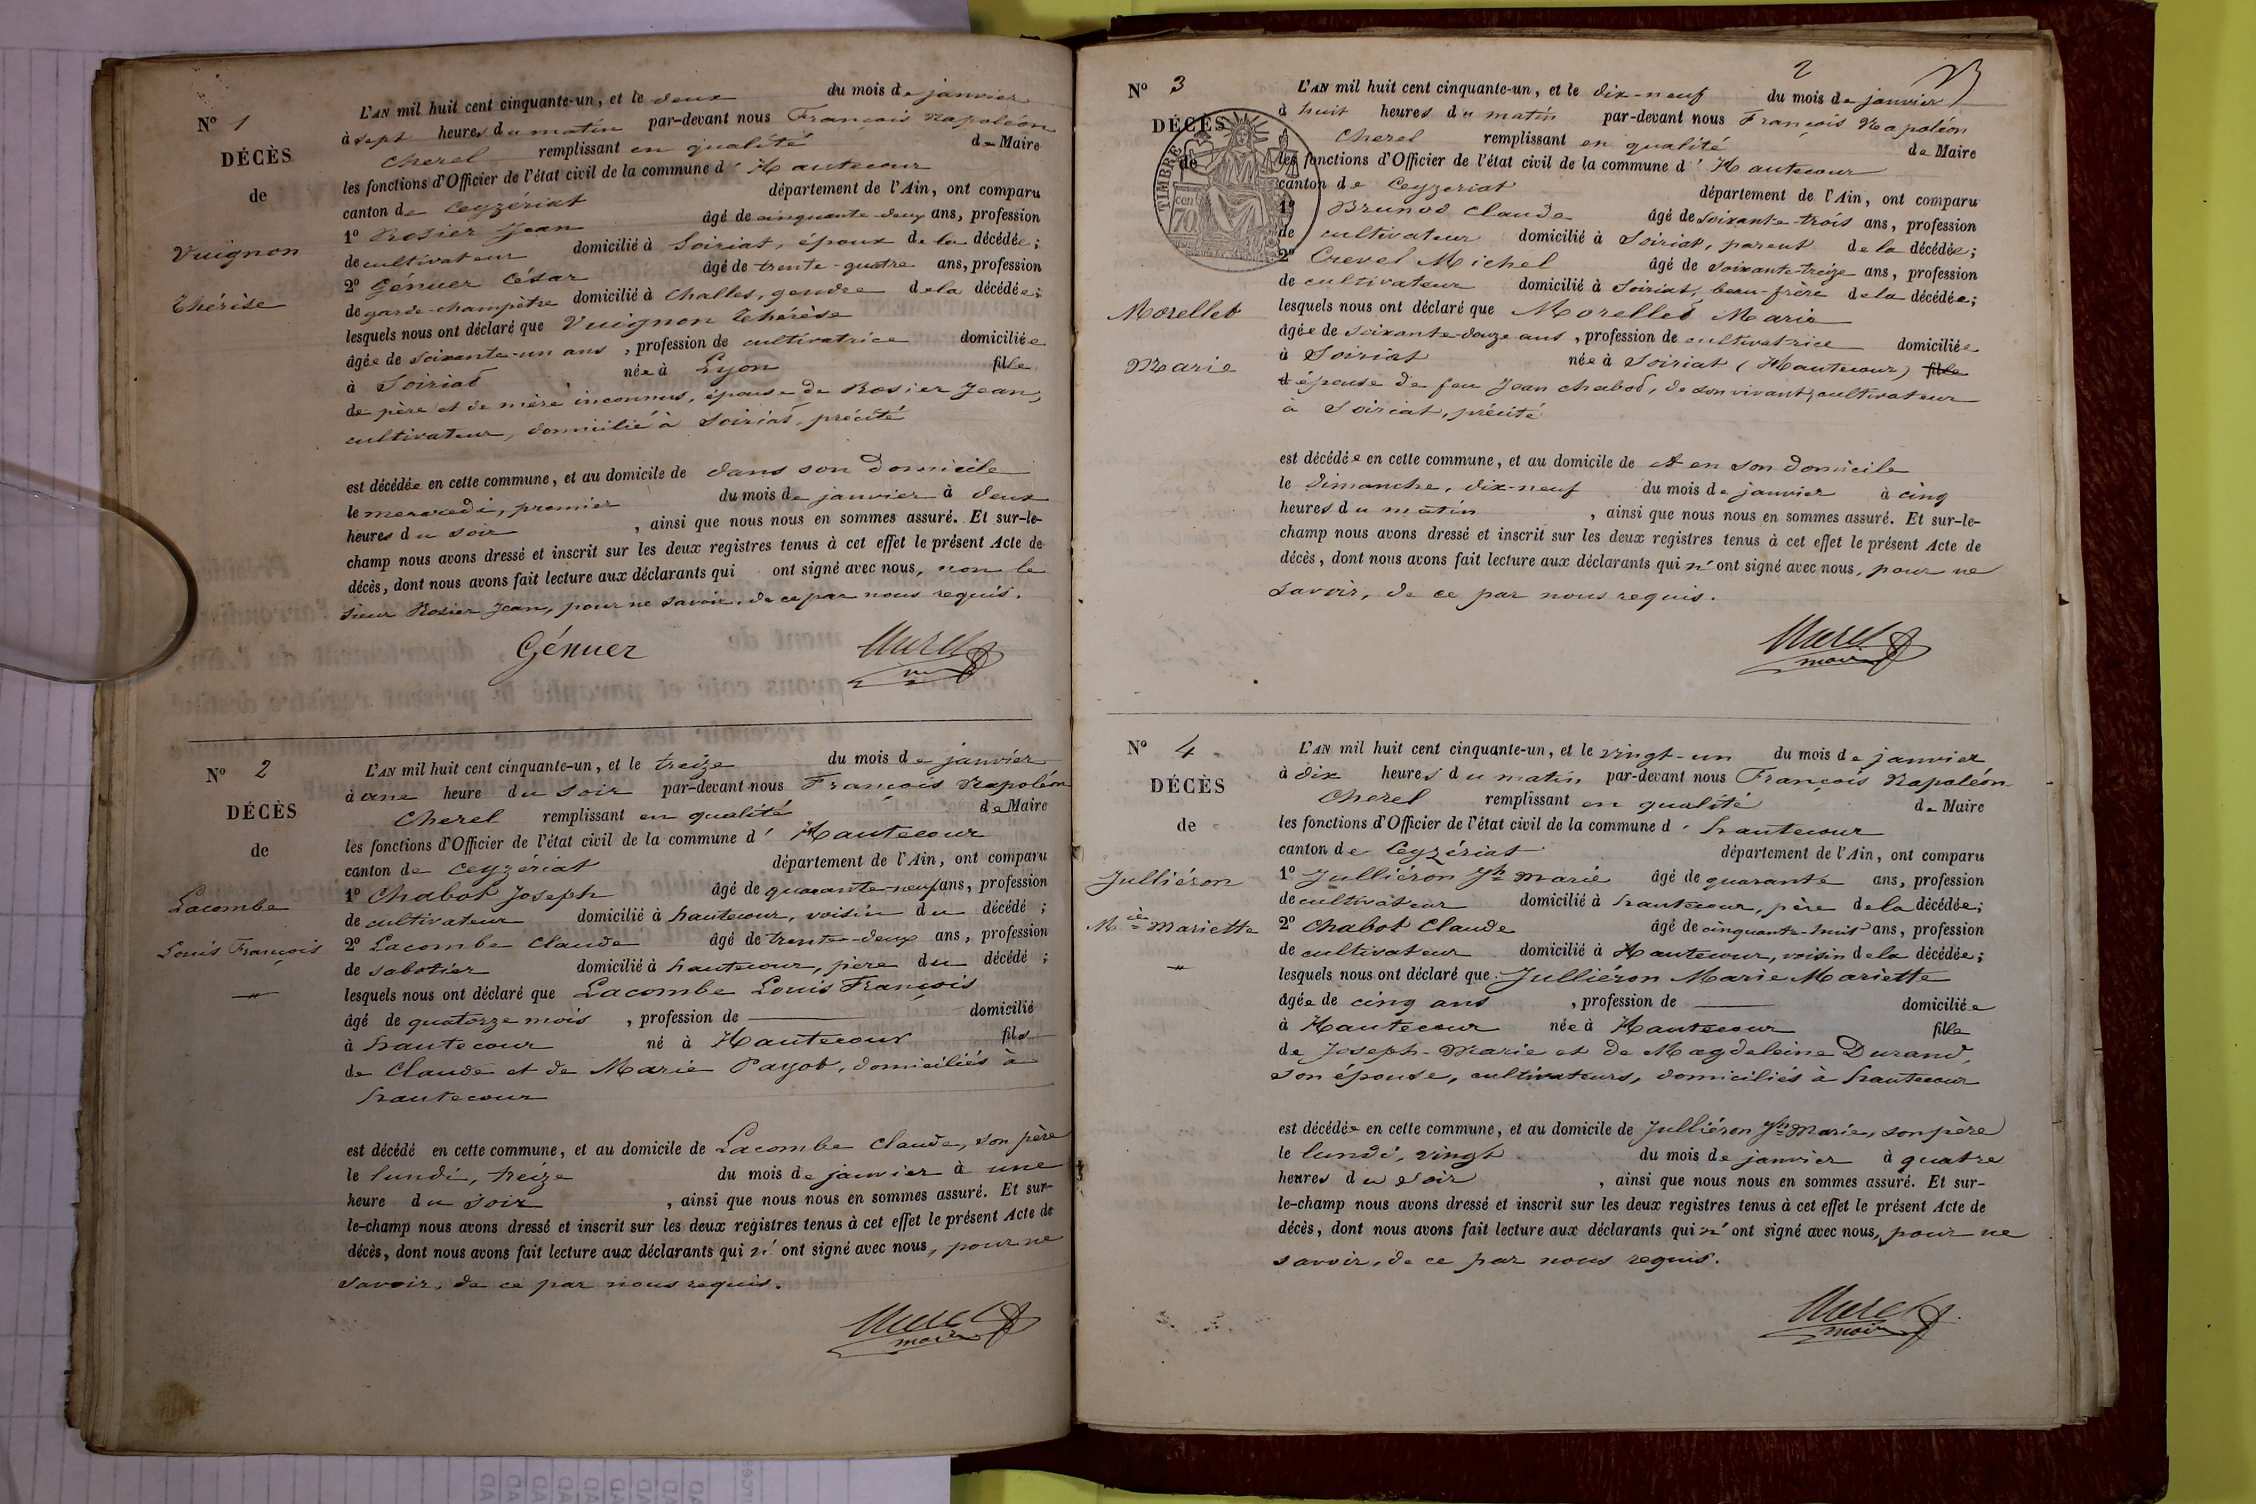 N° 1
DÉCÈS
de
Vuignon
Thérèse
L'AN mil huit cent cinquante-un, et le deux du mois de janvier
à sept heures du matin par-devant nous François Napoléon
Cherel remplissant en qualité de Maire
les fonctions d'Officier de l'état civil de la commune d' Hautecour
canton de Ceyzériat département de l'Ain, ont comparu
1° Rosier Jean âgé de cinquante-deux ans, profession
de cultivateur domicilié à Soiriat, époux de la décédée;
2° Génuer César âgé de trente-quatre ans, profession
de garde-champêtre domicilié à Challes, gendre de la décédée;
lesquels nous ont déclaré que Vuignon Thérèse
âgée de soixante-un ans, profession de cultivatrice domiciliée
à Soiriat née à Lyon fille
de père et de mère inconnus, épouse de Rosier Jean,
cultivateur, domicilié à Soiriat, précité
est décédée en cette commune, et au domicile de dans son domicile
le mercredi, premier du mois de janvier à deux
heures du soir, ainsi que nous nous en sommes assuré. Et sur-le-
champ nous avons dressé et inscrit sur les deux registres tenus à cet effet le présent Acte de
décès, dont nous avons fait lecture aux déclarants qui ont signé avec nous, non le
sieur Rosier Jean, pour ne savoir, de ce par nous requis.
Génuer
N° 2
DÉCÈS
de
Lacombe
Louis François
L'AN mil huit cent cinquante-un, et le treize du mois de janvier
à une heure du soir par-devant nous François Napoléon
Cherel remplissant en qualité de Maire
les fonctions d'Officier de l'état civil de la commune d' Hautecour
canton de Ceyzériat département de l'Ain, ont comparu
1° Chabot Joseph âgé de quarante-neuf ans, profession
de cultivateur domicilié à hautecour, voisin du décédé;
2° Lacombe Claude âgé de trente-deux ans, profession
de sabotier domicilié à hautecour, père du décédé;
lesquels nous ont déclaré que Lacombe Louis François
âgé de quatorze mois, profession de domicilié
à hautecour né à Hautecour fils
de Claude et de Marie Payot, domiciliés à
hautecour
est décédé en cette commune, et au domicile de Lacombe Claude, son père
le lundi, treize du mois de janvier à une
heure du soir, ainsi que nous nous en sommes assuré. Et sur-
le-champ nous avons dressé et inscrit sur les deux registres tenus à cet effet le présent Acte de
décès, dont nous avons fait lecture aux déclarants qui n'ont signé avec nous, pour ne
savoir, de ce par nous requis.
maire
2
N° 3
DÉCÈS
de
TIMBRE
70
Morellet
Marie
L'AN mil huit cent cinquante-un, et le dix-neuf du mois de janvier
à huit heures du matin par-devant nous François Napoléon
Cherel remplissant en qualité de Maire
les fonctions d'Officier de l'état civil de la commune d' Hautecour
canton de Ceyzeriat département de l'Ain, ont comparu
1° Brunod Claude âgé de soixante-trois ans, profession
de cultivateur domicilié à Soiriat, parent de la décédée;
2° Crevel Michel âgé de soixante-treize ans, profession
de cultivateur domicilié à Soiriat, beau-frère de la décédée;
lesquels nous ont déclaré que Morellet Marie
âgée de soixante-douze ans, profession de cultivatrice domiciliée
à Soiriat née à Soiriat (Hautecour) fille
d épouse de feu Jean Chabod, de son vivant, cultivateur
à Soiriat, précité
est décédée en cette commune, et au domicile de et en son domicile
le dimanche, dix-neuf du mois de janvier à cinq
heures du matin, ainsi que nous nous en sommes assuré. Et sur-le-
champ nous avons dressé et inscrit sur les deux registres tenus à cet effet le présent Acte de
décès, dont nous avons fait lecture aux déclarants qui n'ont signé avec nous, pour ne
savoir, de ce par nous requis.
maire
N° 4
DÉCÈS
de
Julliéron
Mie Mariette
L'AN mil huit cent cinquante-un, et le vingt-un du mois de janvier
à dix heures du matin, par-devant nous François Napoléon
Cherel remplissant en qualité de Maire
les fonctions d'Officier de l'état civil de la commune d' hautecour
canton de Ceyzériat département de l'Ain, ont comparu
1° Julliéron Jh Marie âgé de quarante ans, profession
de cultivateur domicilié à hautecour, père de la décédée;
2° Chabot Claude âgé de cinquante-huit ans, profession
de cultivateur domicilié à Hautecour, voisin de la décédée;
lesquels nous ont déclaré que Julliéron Marie Mariette
âgée de cinq ans, profession de domiciliée
à Hautecour née à Hautecour fille
de Joseph-Marie et de Magdeleine Durand,
son épouse, cultivateurs, domiciliés à hautecour
est décédée en cette commune, et au domicile de Julliéron Jh Marie, son père
le lundi, vingt du mois de janvier à quatre
heures du soir, ainsi que nous nous en sommes assuré. Et sur-
le-champ nous avons dressé et inscrit sur les deux registres tenus à cet effet le présent Acte de
décès, dont nous avons fait lecture aux déclarants qui n'ont signé avec nous, pour ne
savoir, de ce par nous requis.
maire